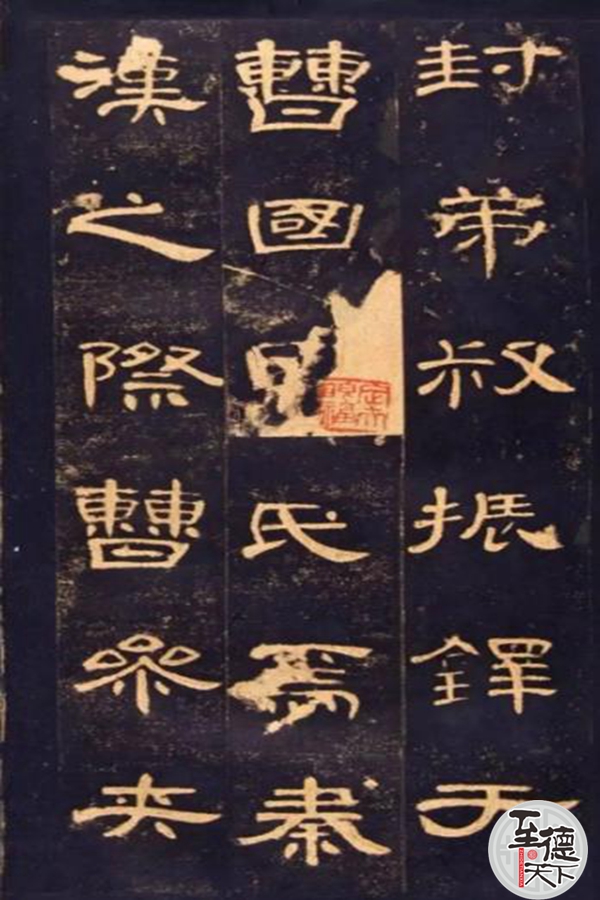 封弟叔振鐸于
曹國氏焉秦
漢之際曹參夾
至德天下